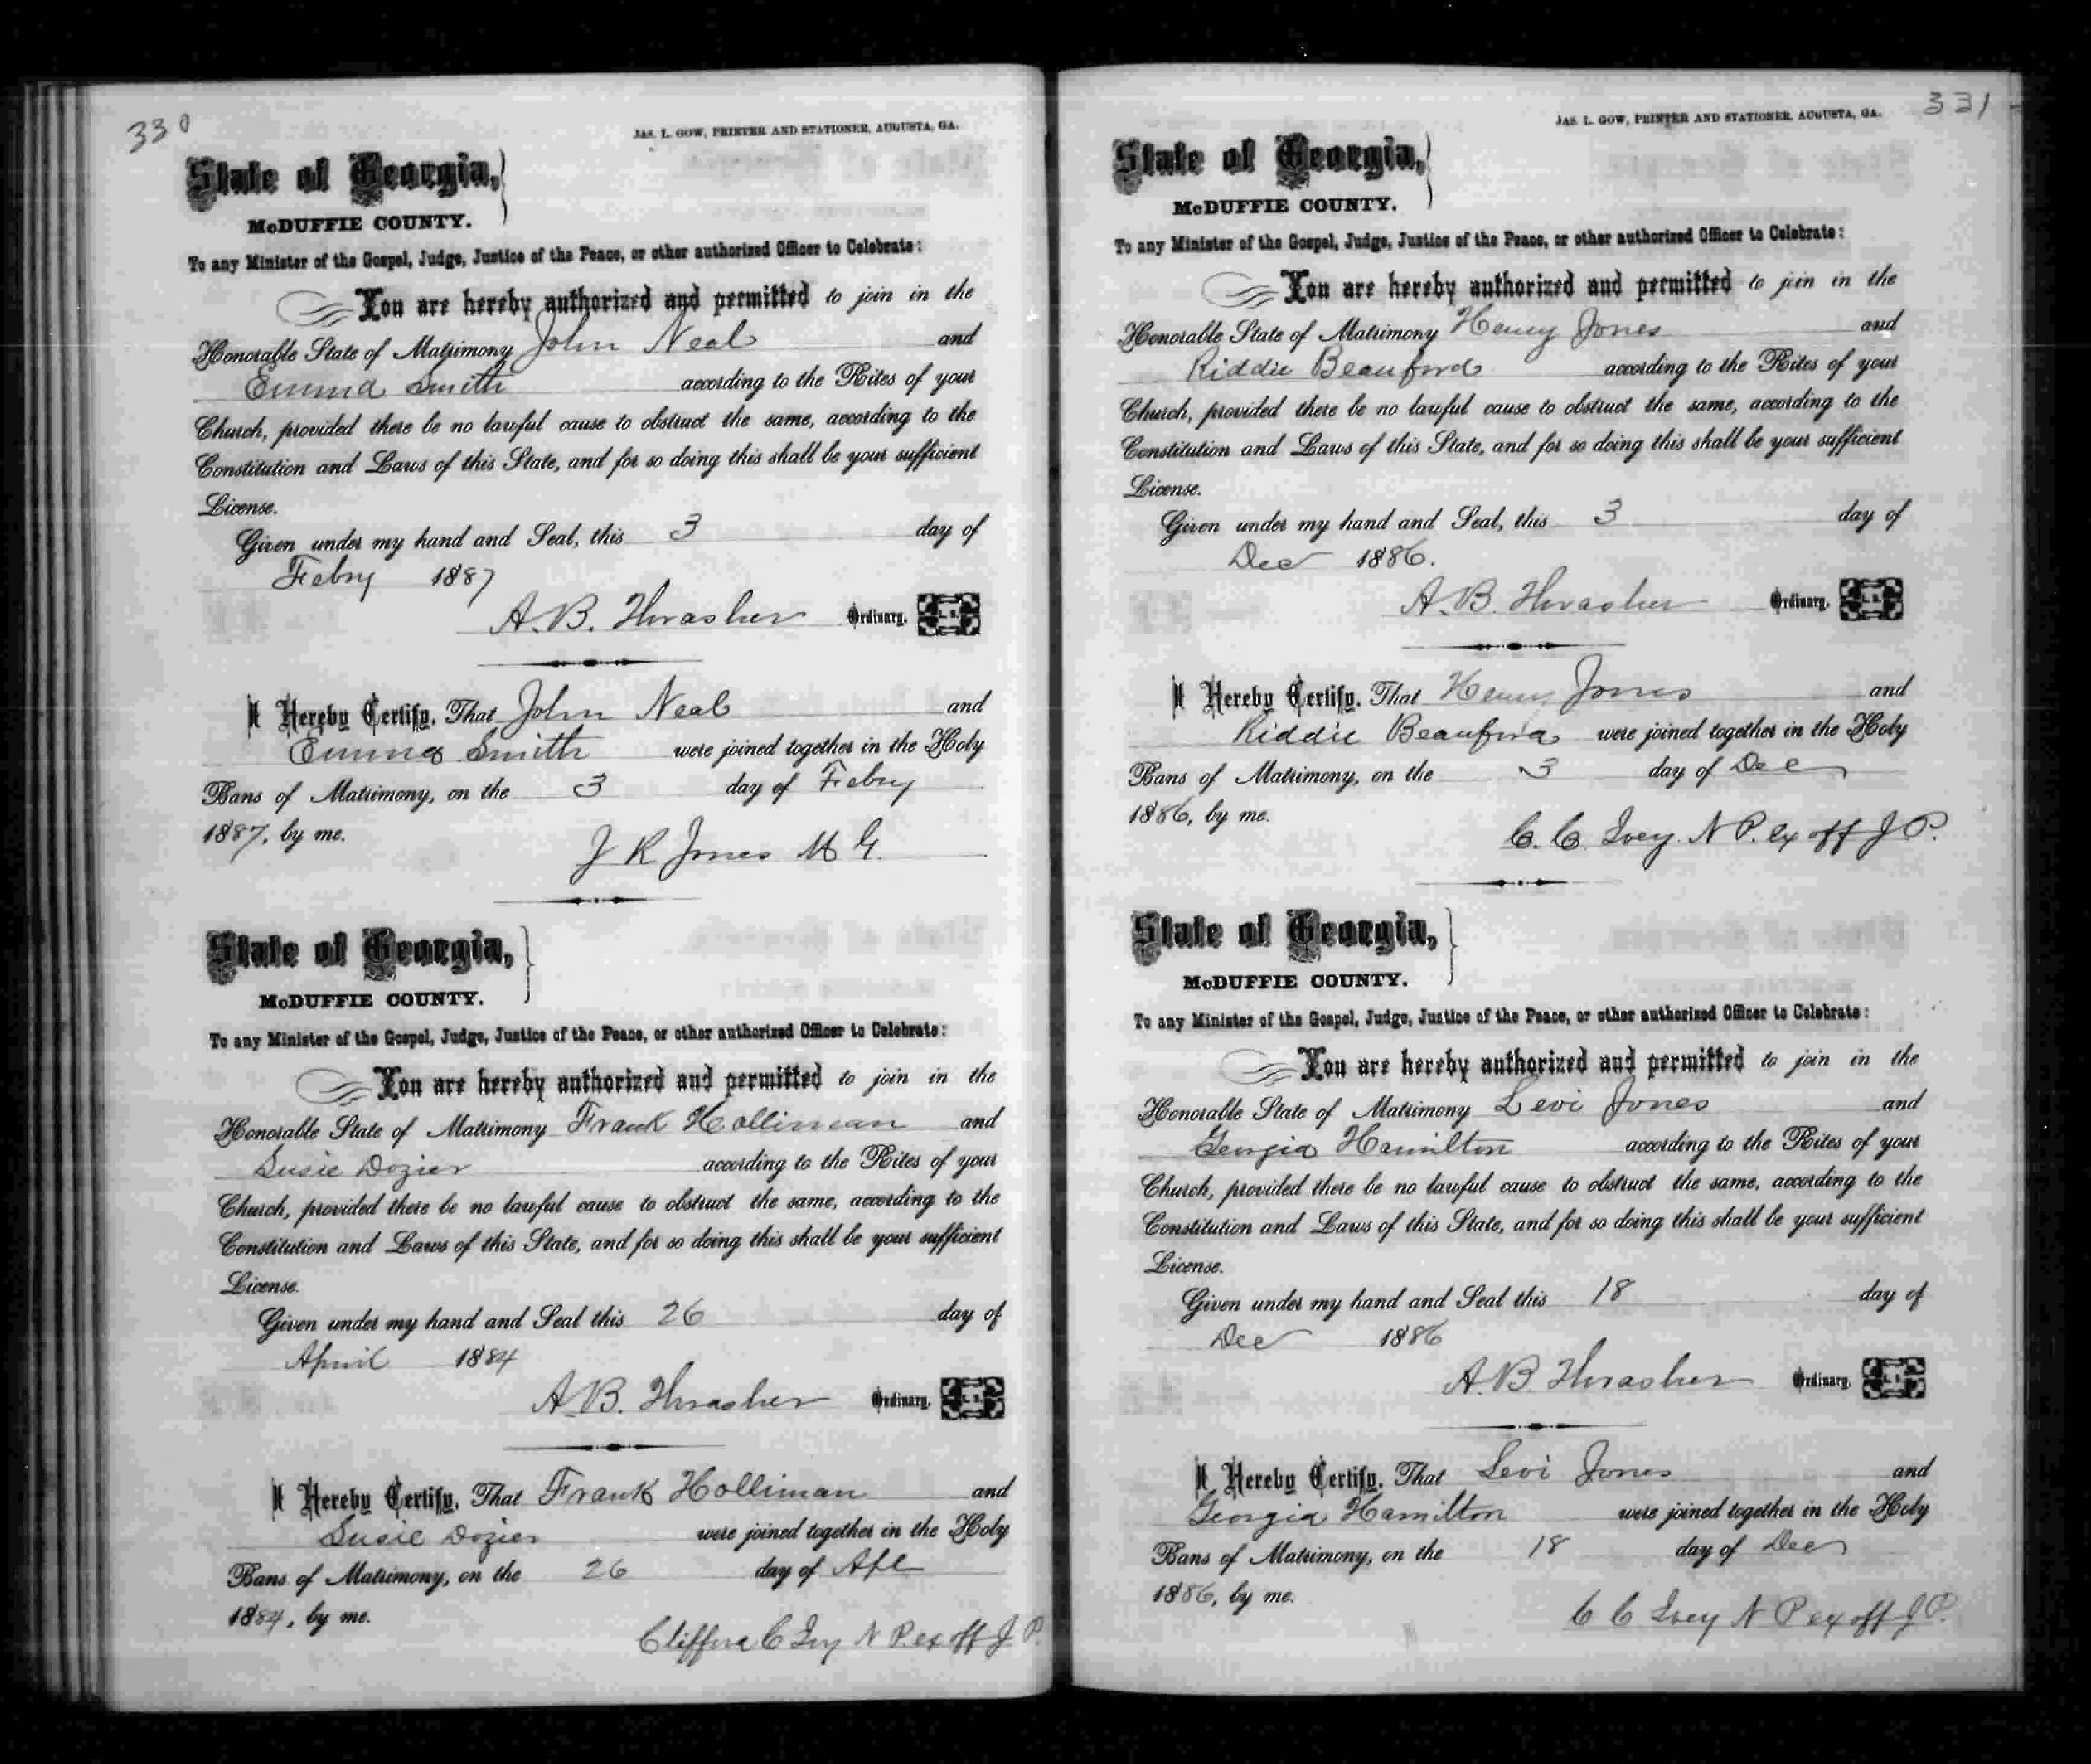 330
JAS. L. GOW, PRINTER AND STATIONER, AUGUSTA, GA.
State of Georgia,
McDUFFIE COUNTY.
To any Minister of the Gospel, Judge, Justice of the Peace, or other authorized Officer to Celebrate:
You are hereby authorized and permitted to join in the
Honorable State of Matrimony John Neal and
Emma Smith according to the Rites of your
Church, provided there be no lawful cause to obstruct the same, according to the
Constitution and Laws of this State, and for so doing this shall be your sufficient
License.
Given under my hand and Seal, this 3 day of
Febry 1887
A. B. Thrasher Ordinary. L. S.
I Hereby Certify, That John Neal and
Emma Smith were joined together in the Holy
Bans of Matrimony, on the 3 day of Febry
1887, by me.
J R Jones M G.
State of Georgia,
McDUFFIE COUNTY.
To any Minister of the Gospel, Judge, Justice of the Peace, or other authorized Officer to Celebrate:
You are hereby authorized and permitted to join in the
Honorable State of Matrimony Frank Holliman and
Susie Dozier according to the Rites of your
Church, provided there be no lawful cause to obstruct the same, according to the
Constitution and Laws of this State, and for so doing this shall be your sufficient
License.
Given under my hand and Seal this 26 day of
April 1884
A. B. Thrasher Ordinary. L. S.
I Hereby Certify, That Frank Holliman and
Susie Dozier were joined together in the Holy
Bans of Matrimony, on the 26 day of Apl
1884, by me.
Clifford C Ivy N P. ex off J P.
331
JAS. L. GOW, PRINTER AND STATIONER, AUGUSTA, GA.
State of Georgia,
McDUFFIE COUNTY.
To any Minister of the Gospel, Judge, Justice of the Peace, or other authorized Officer to Celebrate:
You are hereby authorized and permitted to join in the
Honorable State of Matrimony Henry Jones and
Riddie Beauford according to the Rites of your
Church, provided there be no lawful cause to obstruct the same, according to the
Constitution and Laws of this State, and for so doing this shall be your sufficient
License.
Given under my hand and Seal, this 3 day of
Dec 1886.
A. B. Thrasher Ordinary. L. S.
I Hereby Certify, That Henry Jones and
Riddie Beauford were joined together in the Holy
Bans of Matrimony, on the 3 day of Dec
1886, by me.
C. C. Ivey. N P. ex off J P.
State of Georgia,
McDUFFIE COUNTY.
To any Minister of the Gospel, Judge, Justice of the Peace, or other authorized Officer to Celebrate:
You are hereby authorized and permitted to join in the
Honorable State of Matrimony Levi Jones and
Georgia Hamilton according to the Rites of your
Church, provided there be no lawful cause to obstruct the same, according to the
Constitution and Laws of this State, and for so doing this shall be your sufficient
License.
Given under my hand and Seal this 18 day of
Dec 1886
A. B. Thrasher Ordinary. L. S.
I Hereby Certify, That Levi Jones and
Georgia Hamilton were joined together in the Holy
Bans of Matrimony, on the 18 day of Dec
1886, by me.
C C Ivey N P ex off J P.